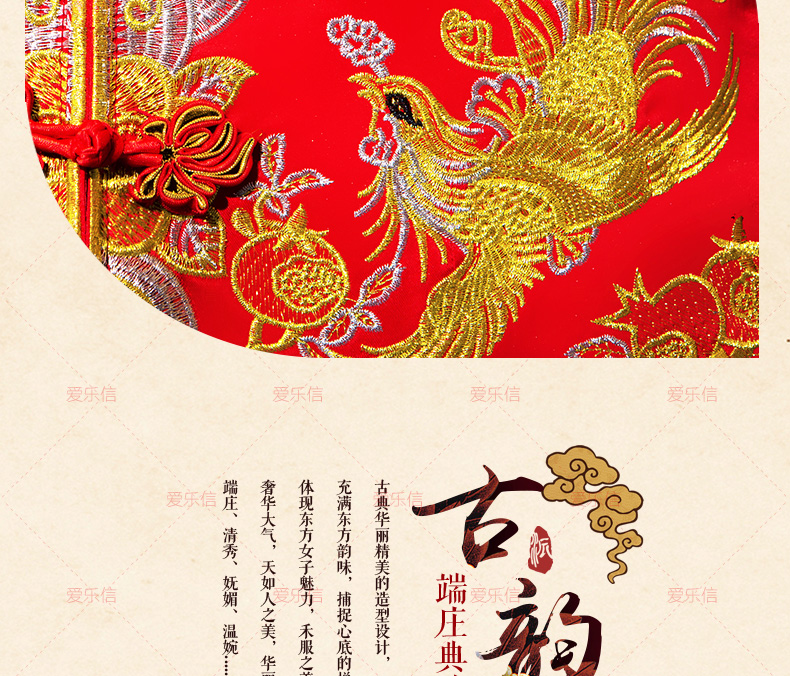 爱乐信 爱乐信 爱乐信 爱乐信
古韵
沅
端庄典
古典华丽精美的造型设计，
充满东方韵味，捕捉心底的
体现东方女子魅力，禾服之
奢华大气，天如人之美，华
端庄、清秀、妩媚、温婉……
爱乐信 爱乐信
爱乐信 爱乐信 爱乐信 爱乐信